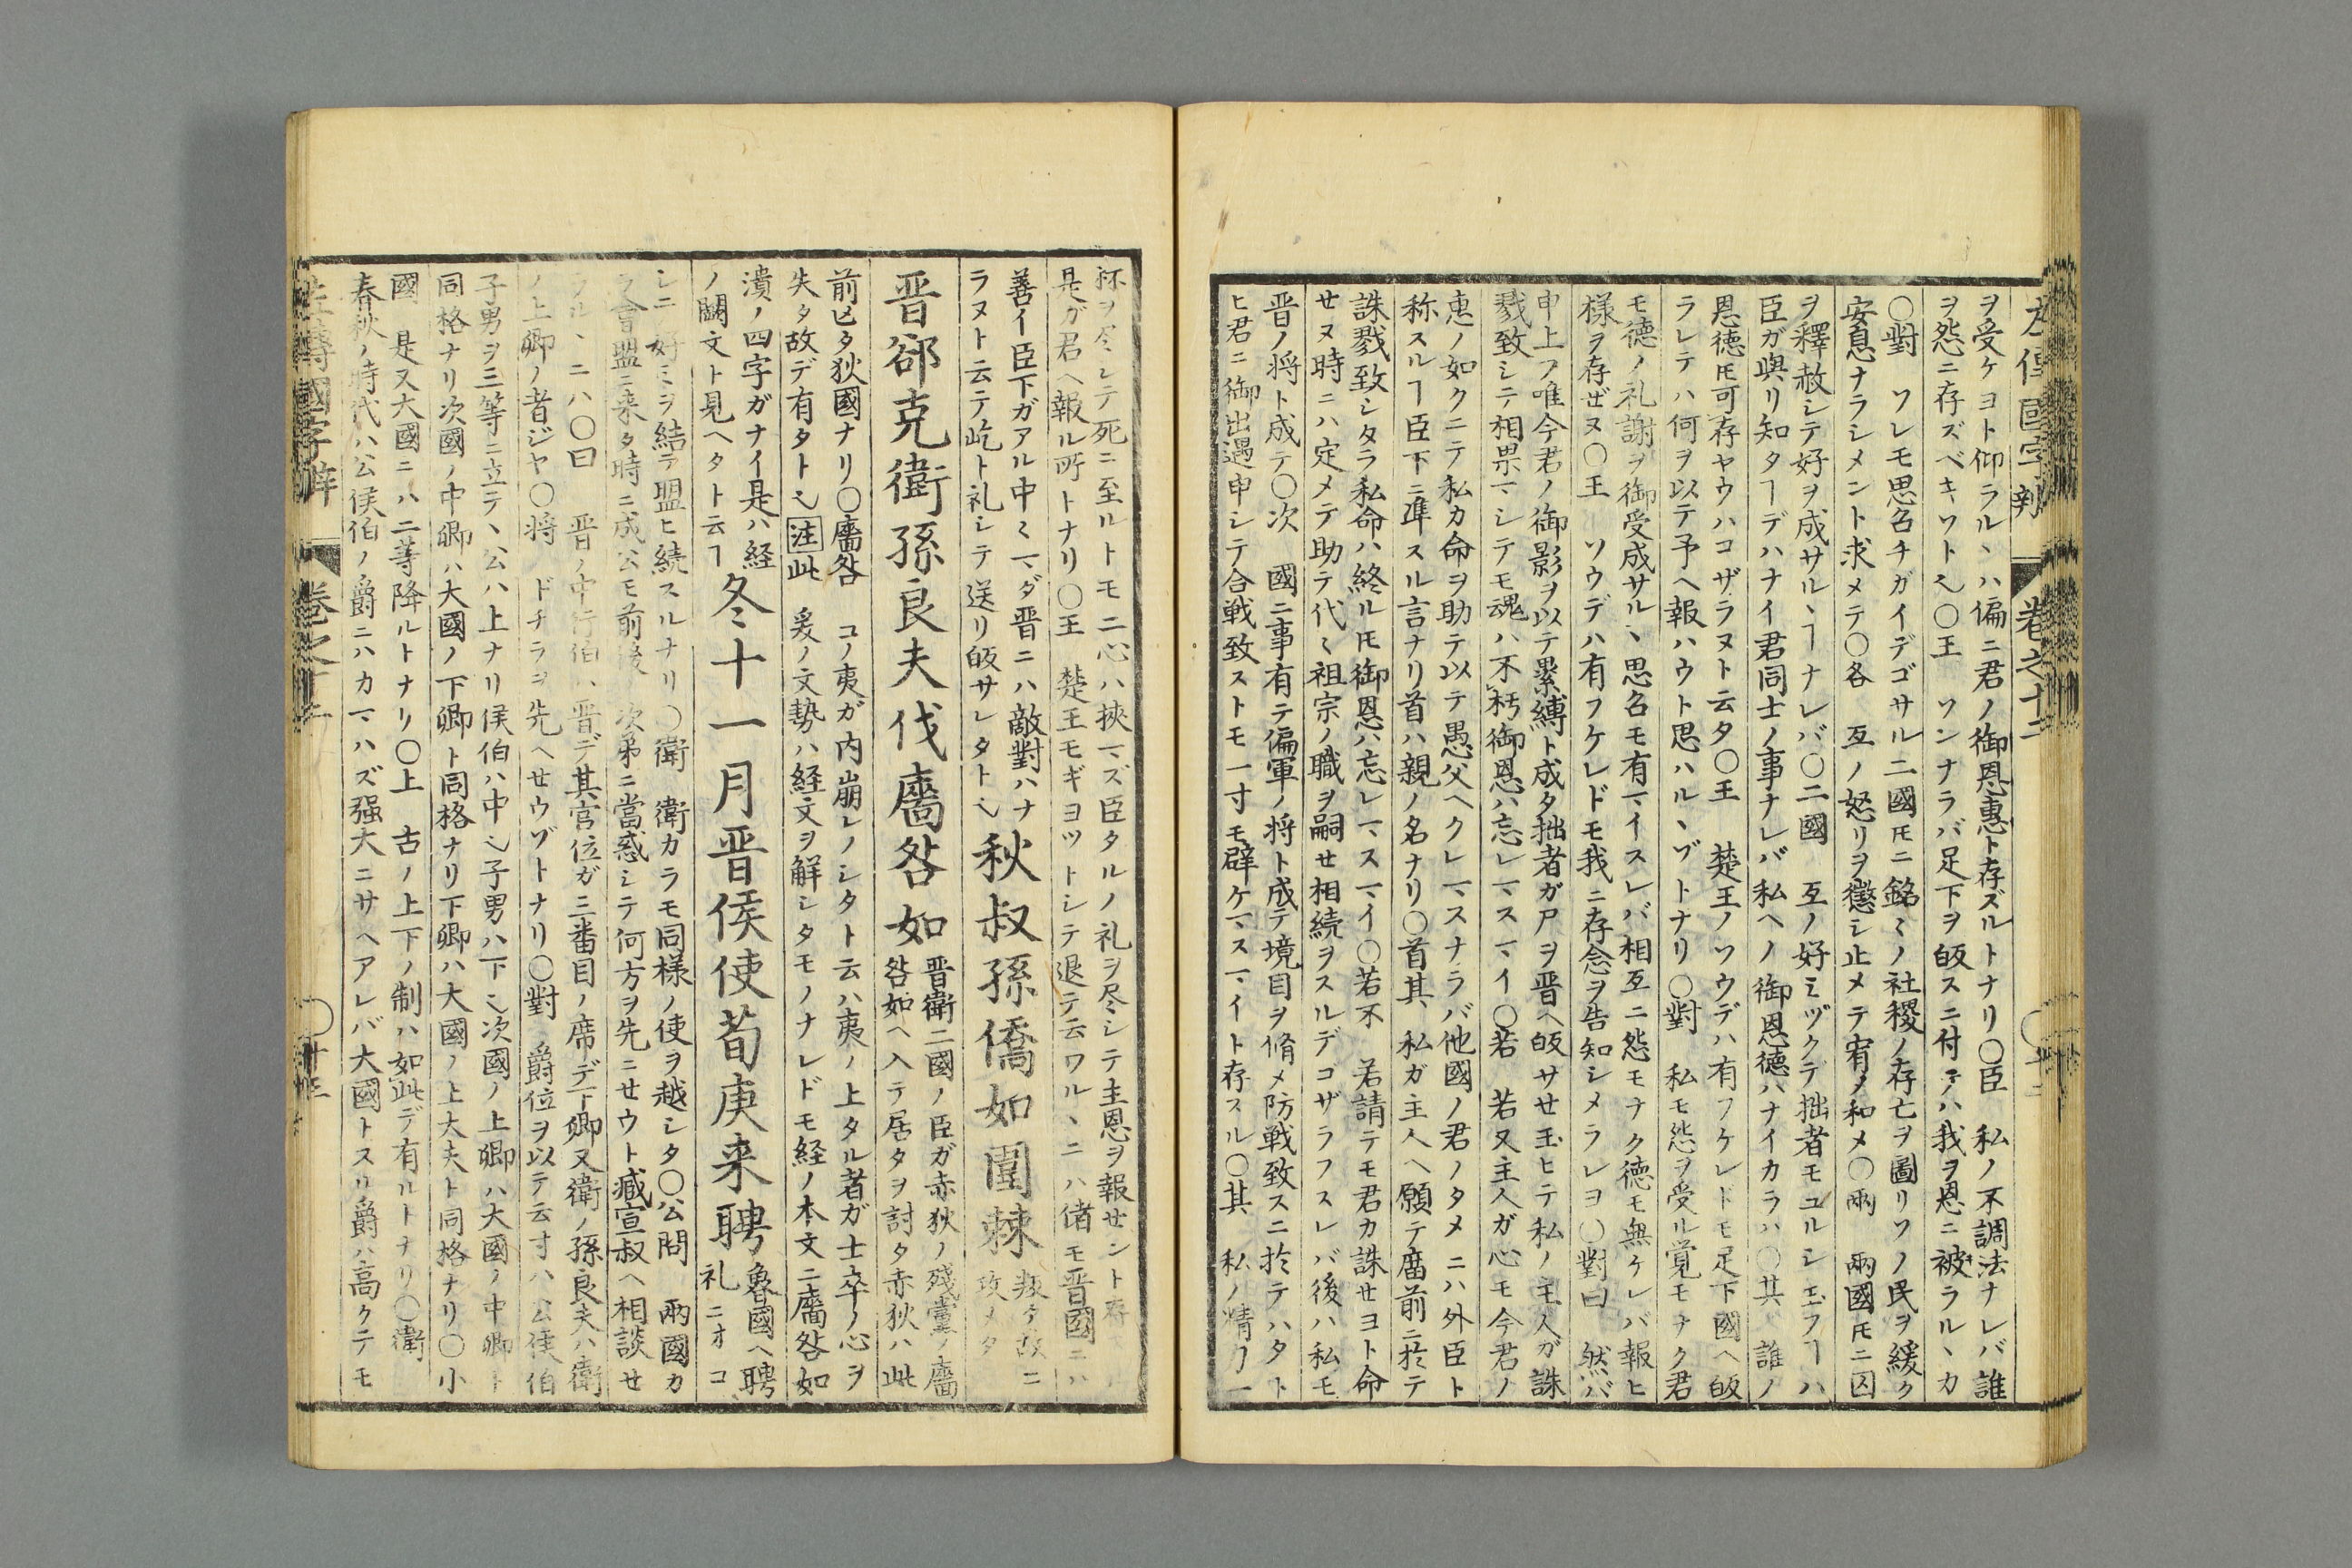 左傳國字辯 卷之十二
ヲ受ケヨト仰ラルヽハ偏ニ君ノ御恩惠ト存ズルトナリ〇臣 私ノ不調法ナレバ誰
ヲ怨ニ存ズベキワト乀〇王 ソンナラバ足下ヲ皈スニ付テハ我ヲ恩ニ被ラルヽカ
〇對 ソレモ思召チガイデゴサル二國𪜈ニ銘〻ノ社稷ノ存亡ヲ圖リソノ民ヲ緩ク
安息ナラシメント求メテ〇各 互ノ怒リヲ懲シ止メテ宥メ和メ〇兩 兩國𪜈ニ囚
ヲ釋赦シテ好ヲ成サルヽヿナレバ〇二國 互ノ好ミヅクデ拙者モユルシ玉フヿハ
臣ガ與リ知タヿデハナイ君同士ノ事ナレバ私ヘノ御恩德ハナイカラハ〇其 誰ノ
恩德𪜈可存ヤウハコザラヌト云タ〇王 楚王ノソウデハ有フケレドモ足下國ヘ皈
ラレテハ何ヲ以テ予ヘ報ハウト思ハルヽゾトナリ〇對 私モ怨ヲ受ル覚モナク君
モ德ノ礼謝ヲ御受成サルヽ思召モ有マイスレバ相互ニ怨モナク德モ無ケレバ報ヒ
様ヲ存ゼヌ〇王 ソウデハ有フケレドモ我ニ存念ヲ告知シメラレヨ〇對曰 然バ
申上フ唯今君ノ御影ヲ以テ累縛ト成タ拙者ガ尸ヲ晋ヘ皈サセ玉ヒテ私ノ主人ガ誅
戮致シテ相果マシテモ魂ハ不朽御恩ハ忘レマスマイ〇若 若又主人ガ心モ今君ノ
恵ノ如クニテ私カ命ヲ助テ以テ愚父ヘクレマスナラバ他國ノ君ノタメニハ外臣ト
称スルヿ臣下ニ準スル言ナリ首ハ親ノ名ナリ〇首其 私ガ主人ヘ願テ廟前ニ於テ
誅戮致シタラ私命ハ終ル𪜈御恩ハ忘レマスマイ〇若不 若請テモ君カ誅セヨト命
セヌ時ニハ定メテ助テ代〻祖宗ノ職ヲ嗣セ相続ヲスルデコザラフスレバ後ハ私モ
晋ノ将ト成テ〇次 國ニ事有テ偏軍ノ将ト成テ境目ヲ脩メ防戦致スニ於テハタト
ヒ君ニ御出遇申シテ合戦致ストモ一寸モ辟ケマスマイト存スル〇其 私ノ精力一
杯ヲ尽シテ死ニ至ルトモ二心ハ挾マズ臣タルノ礼ヲ尽シテ主恩ヲ報セント存
是ガ君ヘ報ル所トナリ〇王 楚王モギヨツトシテ退テ云ワルヽニハ偖モ晋國ニハ
善イ臣下ガアル中〻マダ晋ニハ敵對ハナ
ラヌト云テ屹ト礼シテ送リ皈サレタト乀 秋叔孫僑如圍棘 叛タ故ニ
攻メタ
晋郤克衛孫良夫伐廧咎如 晋衛二國ノ臣ガ赤狄ノ殘黨ノ廧
咎如ヘ入テ居タヲ討タ赤狄ハ此
前𪜈タ狄國ナリ〇廧咎 コノ夷ガ内崩レノシタト云ハ夷ノ上タル者ガ士卒ノ心ヲ
失タ故デ有タト乀注此 爰ノ文勢ハ経文ヲ解シタモノナレドモ経ノ本文ニ廧咎如
潰ノ四字ガナイ是ハ経
ノ闕文ト見ヘタト云ヿ 冬十一月晋侯使荀庚来聘 魯國ヘ聘
礼ニオコ
シニ好ミヲ結テ盟ヒ続スルナリ〇衛 衛カラモ同様ノ使ヲ越シタ〇公問 兩國カ
ラ會盟ニ来タ時ニ成公モ前後 次第ニ當惑シテ何方ヲ先ニセウト臧宣叔ヘ相談セ
ラルヽニハ〇曰 晋ノ中行伯ハ晋デ其官位ガ三番目ノ席デ下卿又衛ノ孫良夫ハ衛
ノ上卿ノ者ジヤ〇将 ドチラヲ先ヘセウゾトナリ〇對 爵位ヲ以テ云寸ハ公侯伯
子男ヲ三等ニ立テヽ公ハ上ナリ侯伯ハ中乀子男ハ下乀次國ノ上卿ハ大國ノ中卿ト
同格ナリ次國ノ中卿ハ大國ノ下卿ト同格ナリ下卿ハ大國ノ上大夫ト同格ナリ〇小
國 是又大國ニハ二等降ルトナリ〇上 古ノ上下ノ制ハ如此デ有ルトナリ〇衛
春秋ノ時代ハ公侯伯ノ爵ニハカマハズ强大ニサヘアレバ大國トスル爵ハ高クテモ
左傳國字辯 卷之十二